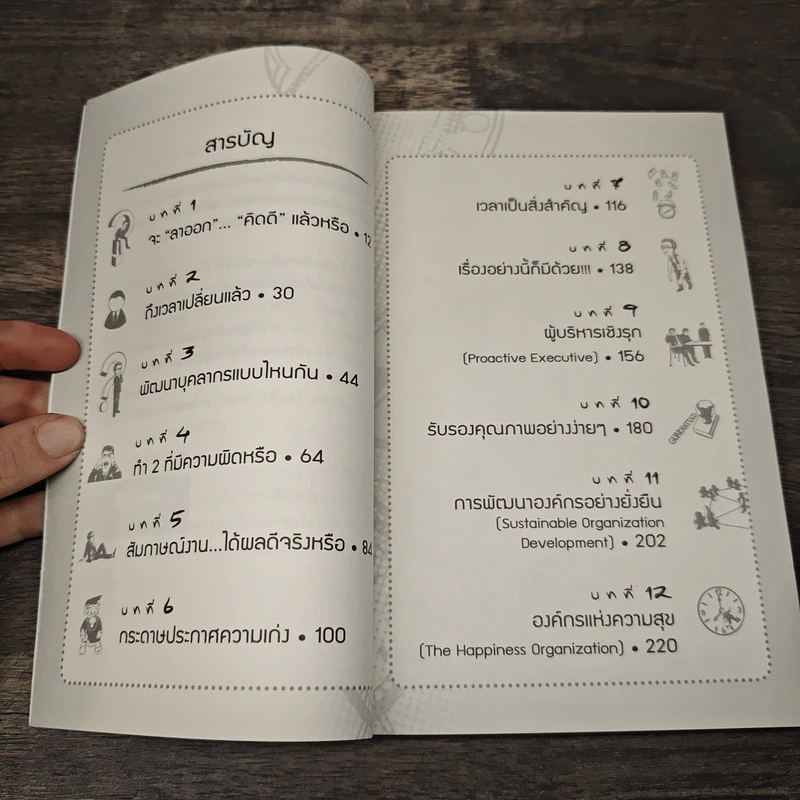 สารบัญ
บทที่ 1
จะ “ลาออก”... “คิดดี” แล้วหรือ • 12
บทที่ 2
ถึงเวลาเปลี่ยนแล้ว • 30
บทที่ 3
พัฒนาบุคลากรแบบไหนกัน • 44
บทที่ 4
ทำ 2 ที่มีความผิดหรือ • 64
บทที่ 5
สัมภาษณ์งาน...ได้ผลดีจริงหรือ • 84
บทที่ 6
กระดาษประกาศความเก่ง • 100
บทที่ 7
เวลาเป็นสิ่งสำคัญ • 116
บทที่ 8
เรื่องอย่างนี้ก็มีด้วย!!! • 138
บทที่ 9
ผู้บริหารเชิงรุก
(Proactive Executive) • 156
บทที่ 10
รับรองคุณภาพอย่างง่ายๆ • 180
บทที่ 11
การพัฒนาองค์กรอย่างยั่งยืน
(Sustainable Organization
Development) • 202
บทที่ 12
องค์กรแห่งความสุข
(The Happiness Organization) • 220